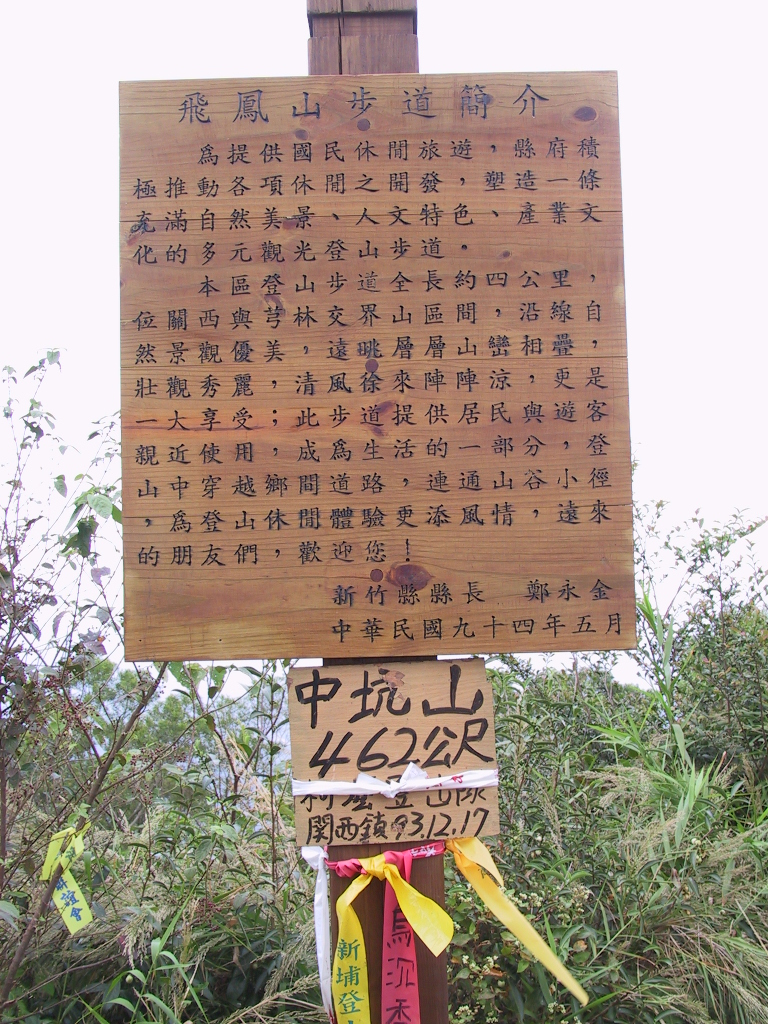 飛鳳山步道簡介
為提供國民休閒旅遊，縣府積
極推動各項休閒之開發，塑造一條
充滿自然美景、人文特色、產業文
化的多元觀光登山步道。
本區登山步道全長約四公里，
位關西與芎林交界山區間，沿線自
然景觀優美，遠眺層層山巒相疊，
壯觀秀麗，清風徐來陣陣涼，更是
一大享受；此步道提供居民與遊客
親近使用，成為生活的一部分，登
山中穿越鄉間道路，連通山谷小徑
，為登山休閒體驗更添風情，遠來
的朋友們，歡迎您！
新竹縣縣長 鄭永金
中華民國九十四年五月
中坑山
462公尺
登山隊
関西鎮 93.12.17
新埔登
烏沉香
誼會